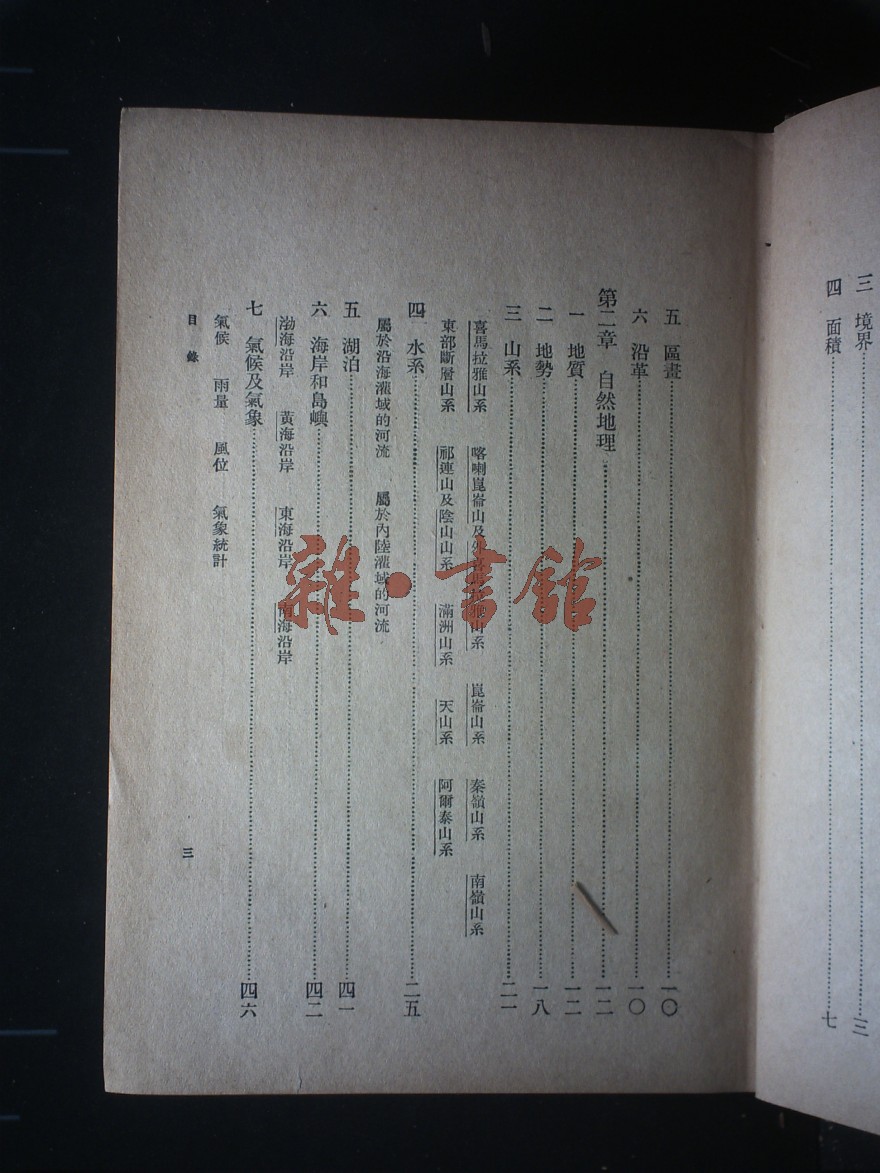 三　境界……三
四　面積……七
五　區畫……一〇
六　沿革……一〇
第二章　自然地理……一二
一　地質……一二
二　地勢……一八
三　山系……二一
喜馬拉雅山系　喀喇崑崙山及外喜馬拉雅山系　崑崙山系　秦嶺山系　南嶺山系
東部斷層山系　祁連山及陰山山系　滿洲山系　天山系　阿爾泰山系
四　水系……二五
屬於沿海灌域的河流　屬於內陸灌域的河流
五　湖泊……四一
六　海岸和島嶼……四二
渤海沿岸　黃海沿岸　東海沿岸　南海沿岸
七　氣候及氣象……四六
氣候　雨量　風位　氣象統計
目錄　三
雜·書館